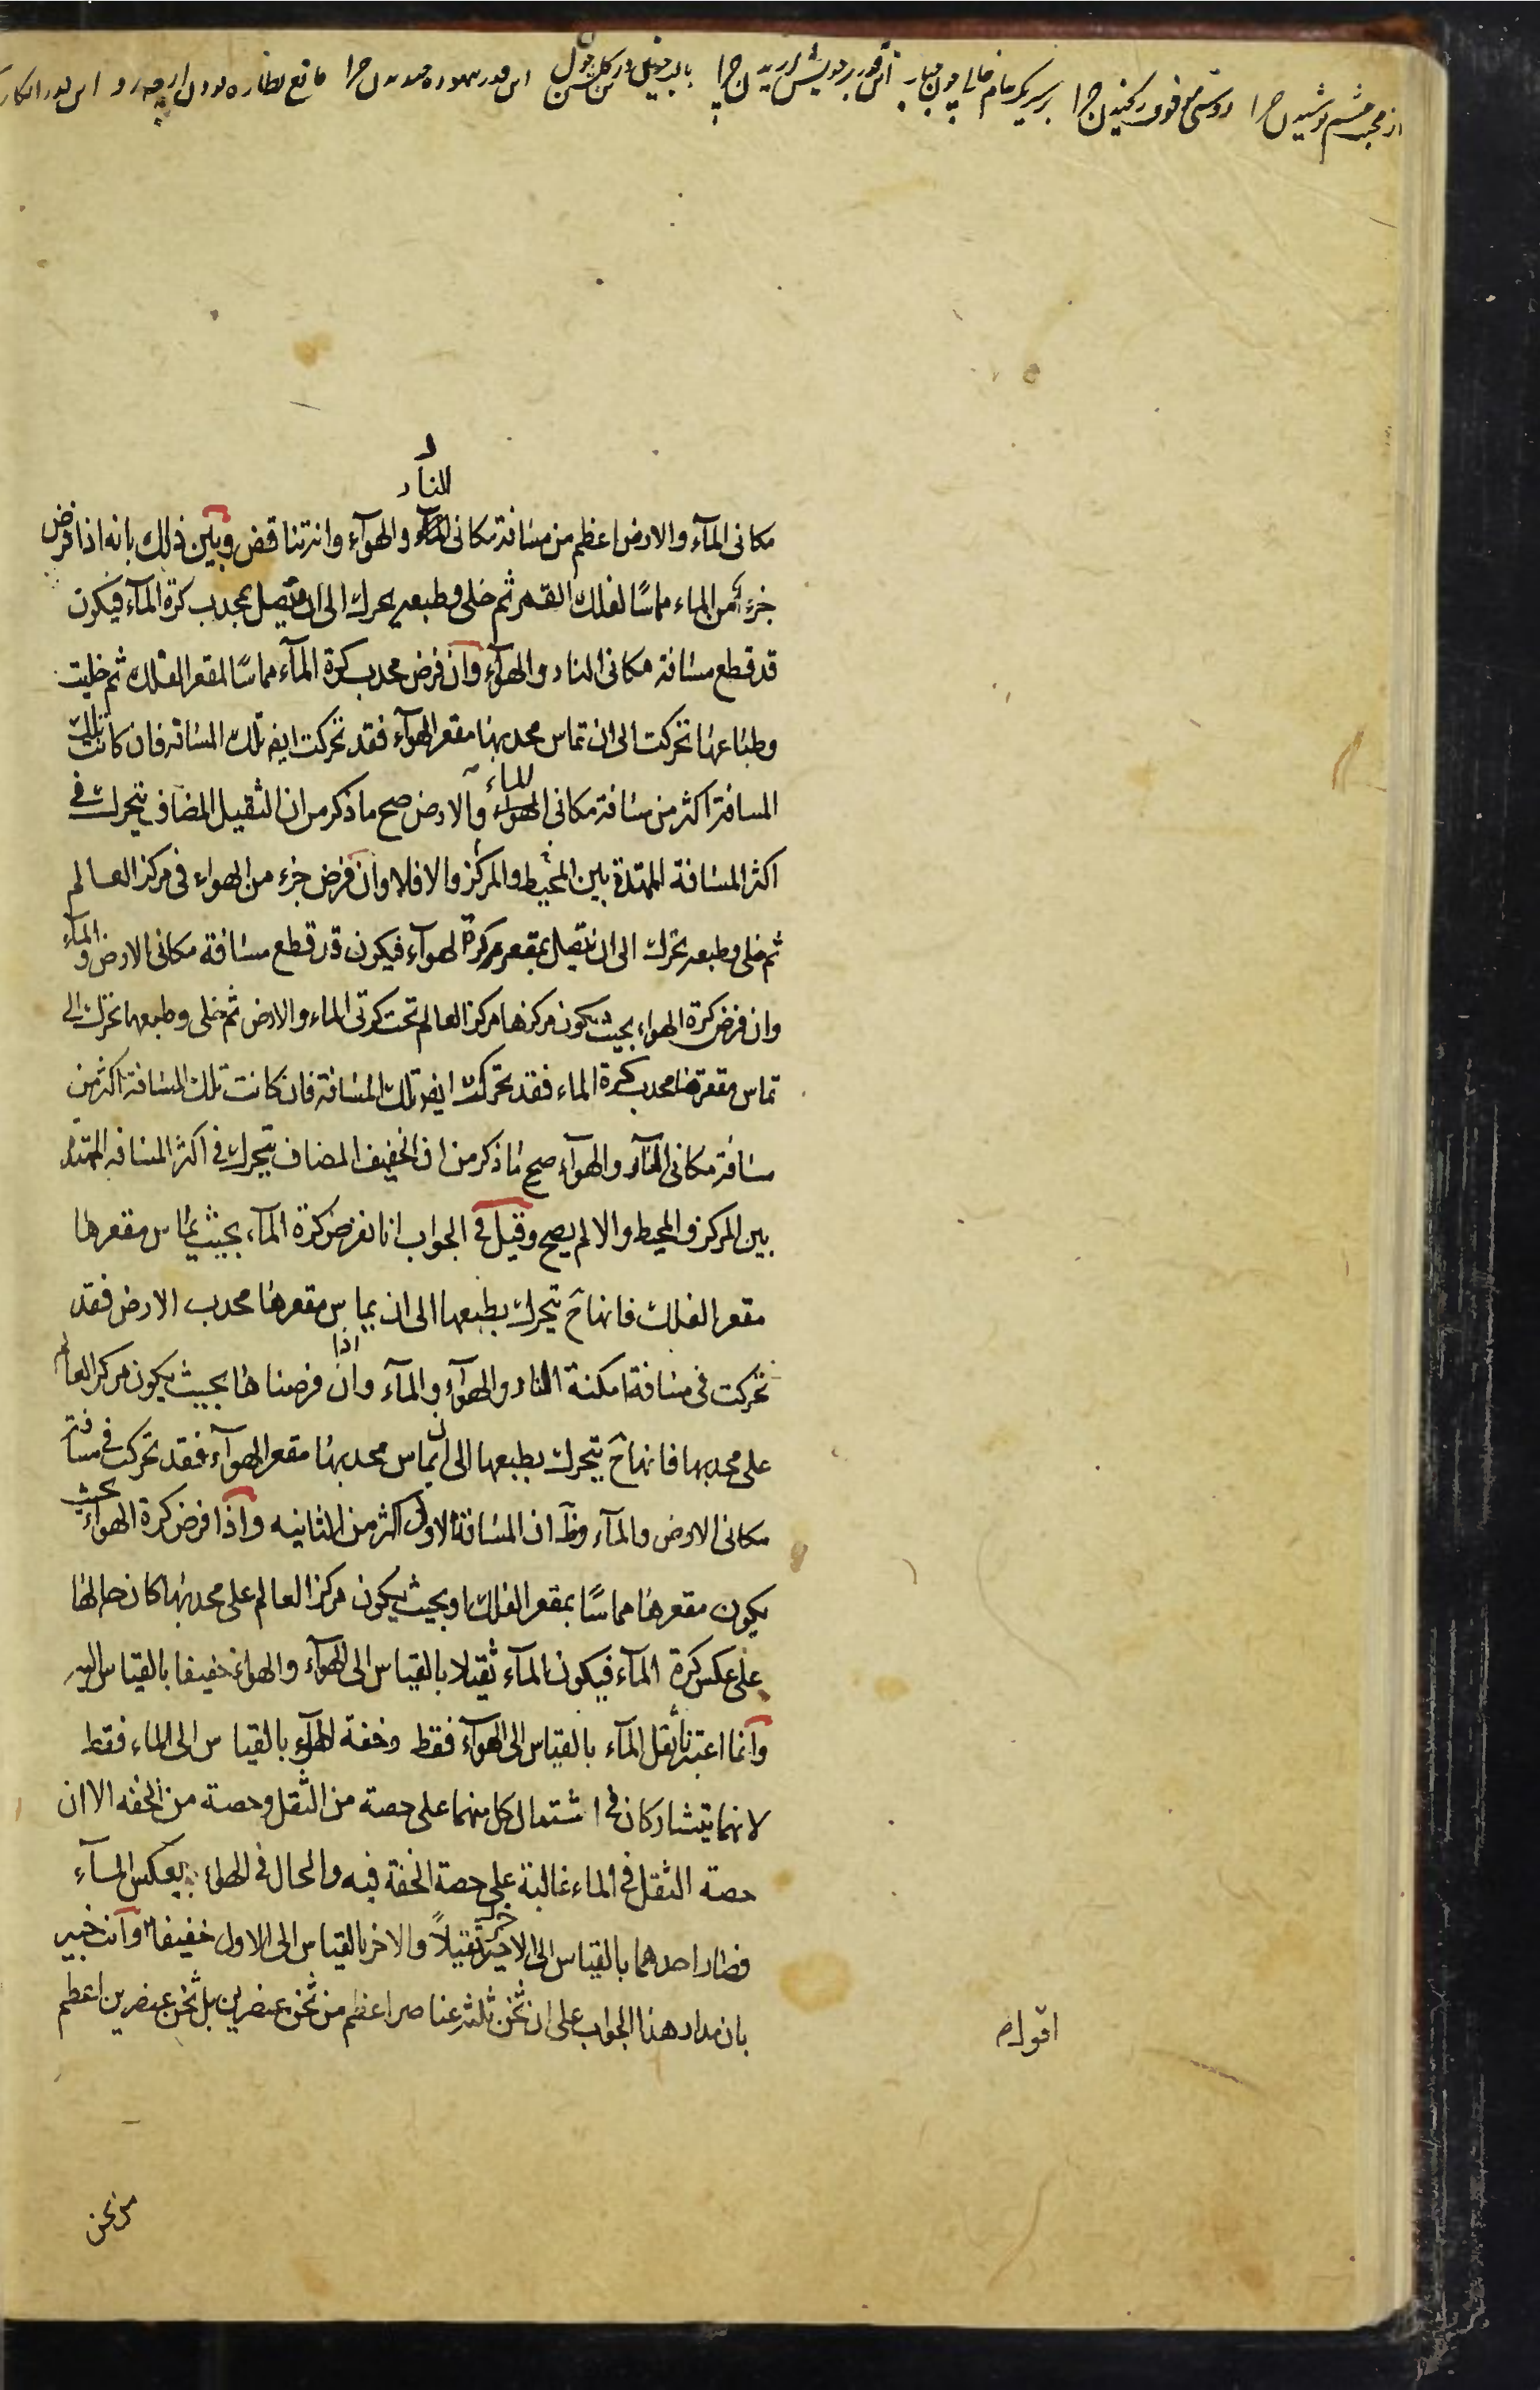 از محب چشم پوشیدن چرا دوستی می ریختن چرا بر سر یکدیگر این قدر بر خویش چرا با این قدر چرا مانع نظاره بودن از چه رو این قدر
للنار
مكانى المآء والارض اعظم من مسافة مكانى النار والهوآء وانه تناقض وبين ذلك بانه اذا فرض
جزء من الماء مماسًا لفلك القمر ثم خلى وطبعه يحرك الى ان يتصل بمحدب كرة المآء فيكون
قد قطع مسافة مكانى النار والهوآء وان فرض محدب كرة المآء مماسًا لمقعر الفلك ثم خليت
وطباعها تحركت الى ان تماس محدبها مقعر الهوآء فقد تحركت ايضا تلك المسافة فان كانت تلك
المسافة اكثر من مسافة مكانى الماء والارض صح ما ذكر من ان الثقيل المضاف يتحرك فى
اكثر المسافة الممتدة بين المحيط والمركز والا فلا وان فرض جزء من الهواء فى مركز العالم
ثم خلى وطبعه تحرك الى ان يتصل بمقعر كرة الهوآء فيكون قد قطع مسافة مكانى الارض والمآء
وان فرض كرة الهواء بحيث يكون مركزها مركز العالم تحت كرتى الماء والارض ثم تخلى وطبعها تحرك الى
تماس مقعرها محدب كرة الماء فقد تحركت ايضا تلك المسافة فان كانت تلك المسافة اكثر من
مسافة مكانى النار والهوآء صح ما ذكر من ان الخفيف المضاف يتحرك فى اكثر المسافة الممتدة
بين المركز والمحيط والا لم يصح وقيل فى الجواب انا نفرض كرة المآء بحيث يماس مقعرها
مقعر الفلك فانها ح يتحرك بطبعها الى ان يماس مقعرها محدب الارض فقد
تحركت فى مسافة امكنة النار والهوآء والمآء وان اذا فرضناها بحيث يكون مركز العالم
على محدبها فانها ح يتحرك بطبعها الى ان يماس محدبها مقعر الهوآء فقد تحركت فى مسافة
مكانى الارض والمآء وظ ان المسافة الاولى اكثر من الثانيه واذا فرض كرة الهواء بحيث
يكون مقعرها مماسًا بمقعر الفلك او بحيث يكون مركز العالم على محدبها كان حالها
على عكس كرة المآء فيكون المآء ثقيلا بالقياس الى الهوآء والهواء خفيفا بالقياس اليه
وانما اعتبرنا ثقل المآء بالقياس الى الهوآء فقط وخفة الهوآء بالقياس الى الماء فقط
لانهما يتشاركان فى اشتمال كل منهما على حصة من الثقل وحصة من الخفه الا ان
حصة الثقل فى الماء غالبة على حصة الخفة فيه والحال فى الهواء بعكس المآء
فصار احدهما بالقياس الى الاخر ثقيلاً والاخر بالقياس الى الاول خفيفا وانت خبير
بان مدار هذا الجواب على ان ثخن ثلثة عناصر اعظم من ثخن عنصرين بل ثخن عنصرين اعظم
اقول
من ثخن